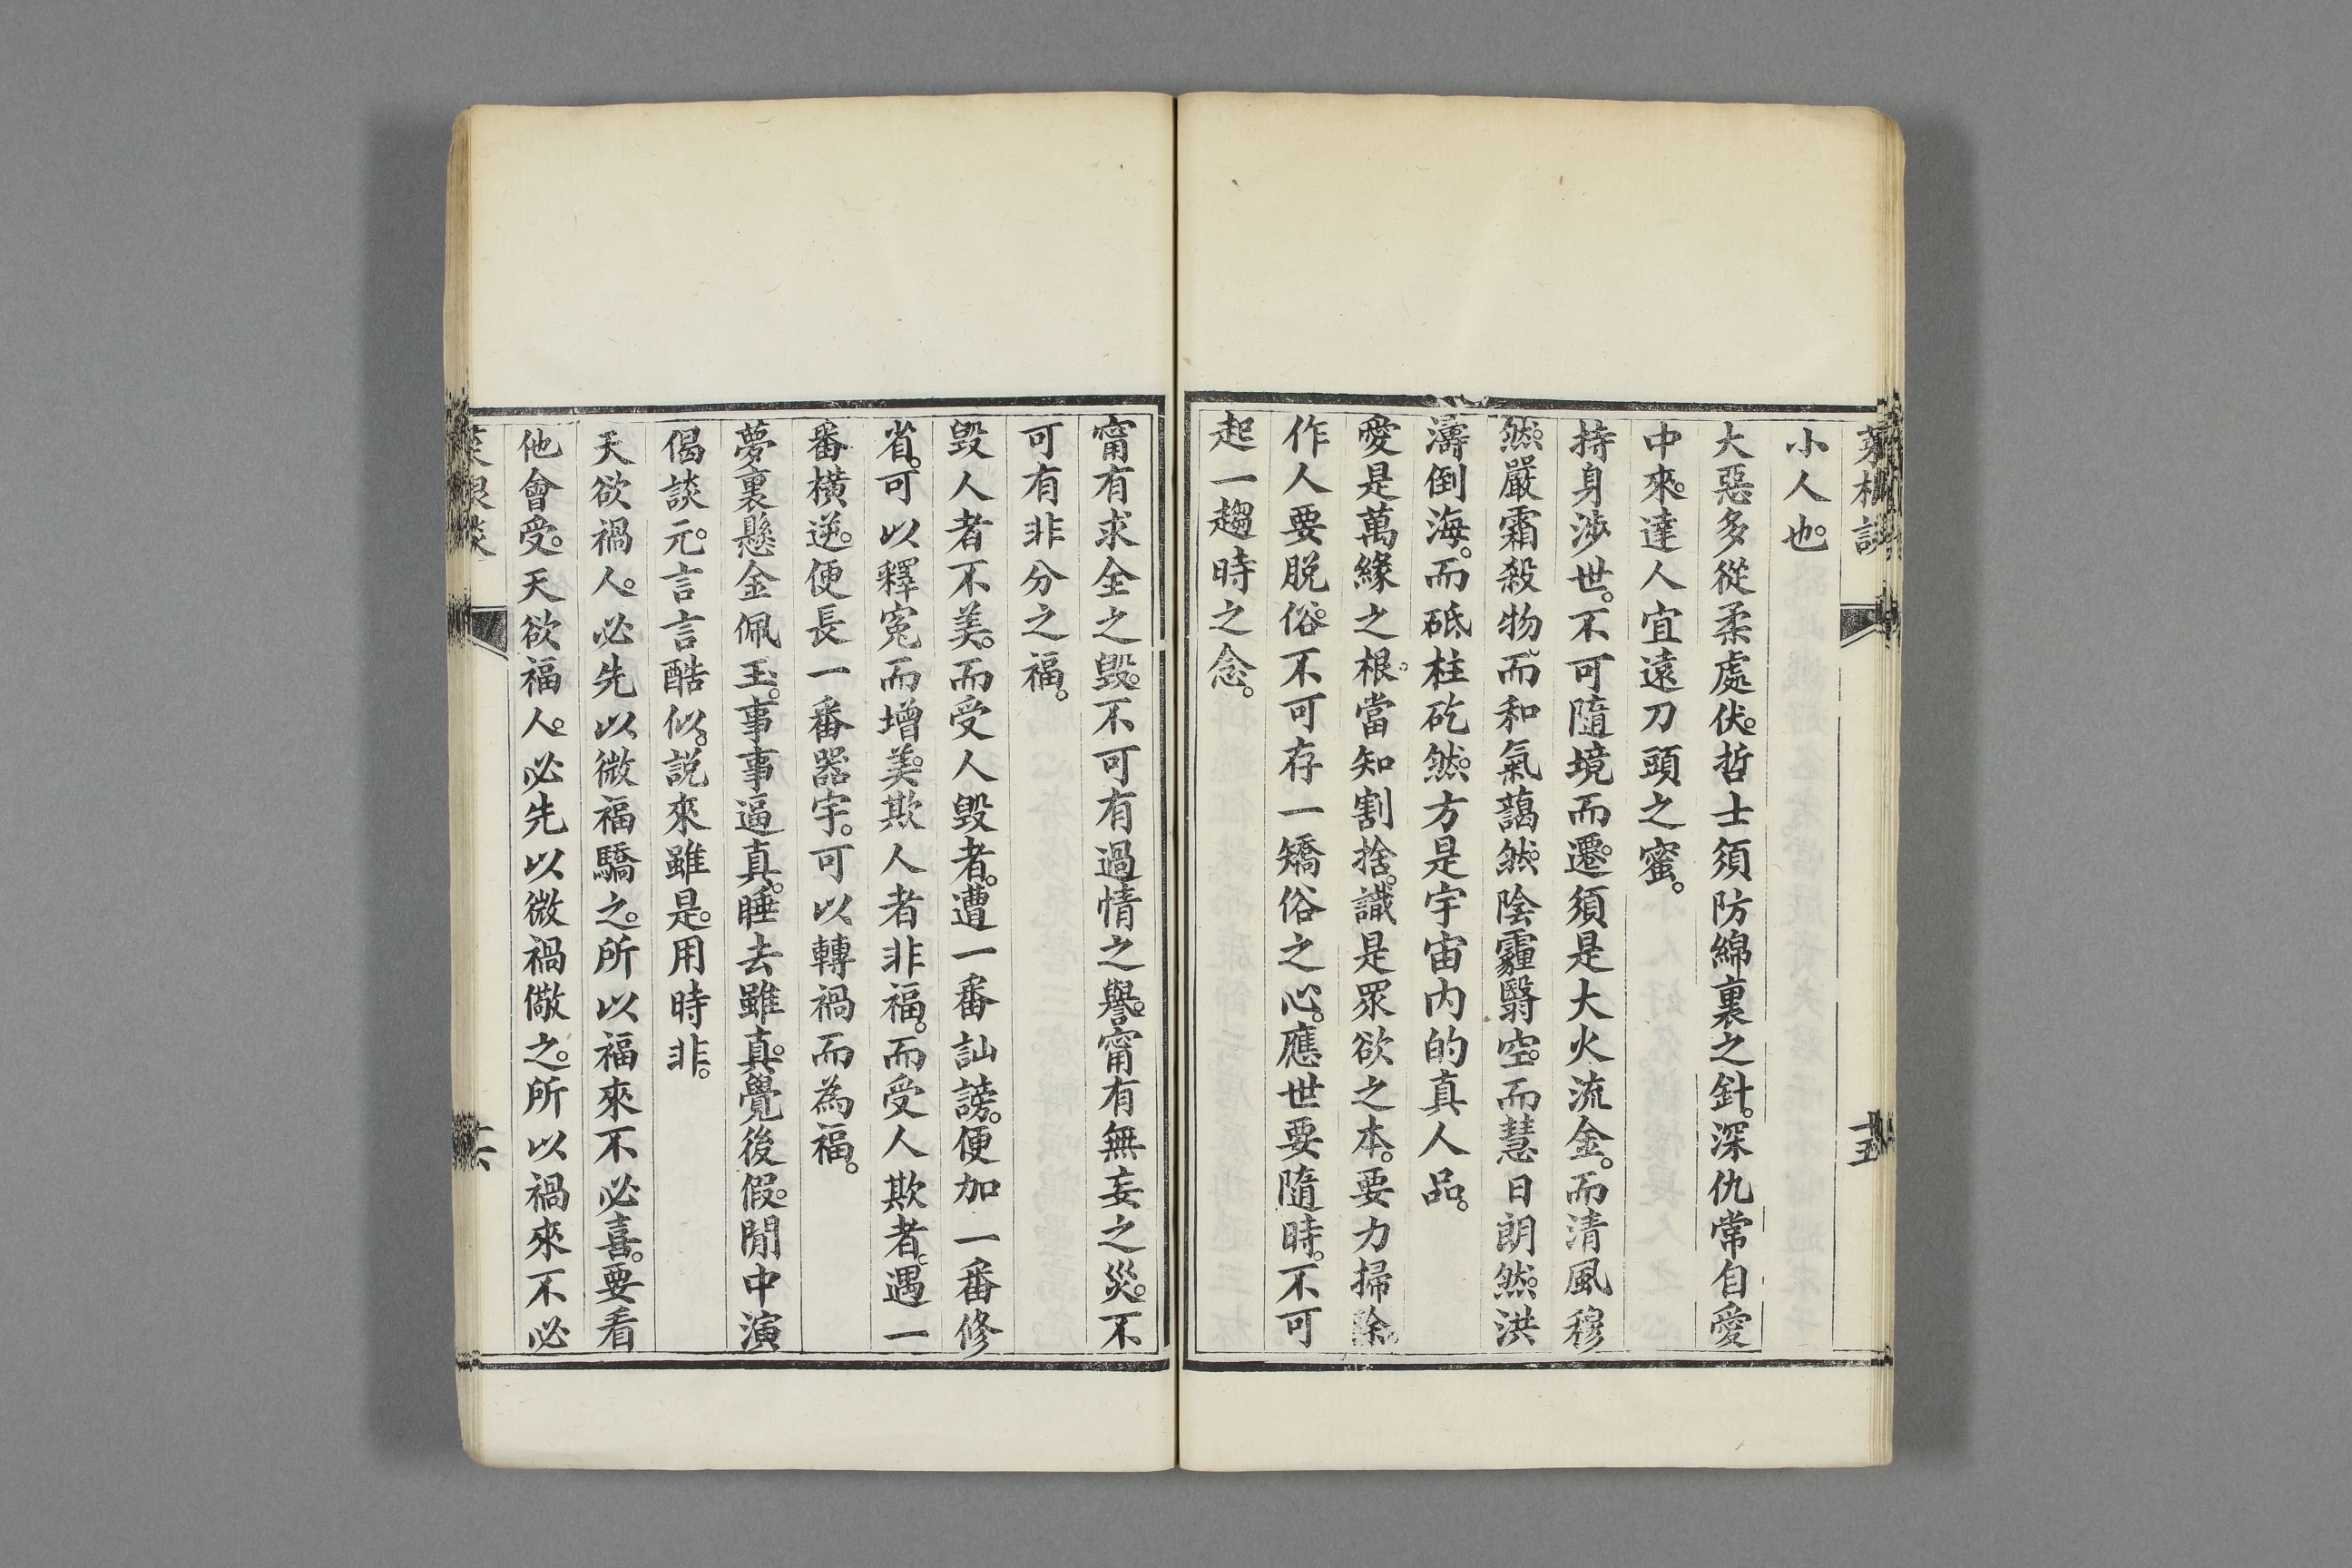 菜根談
十五
小人也。
大惡多從柔處伏。哲士須防綿裏之針。深仇常自愛
中來。達人宜遠刀頭之蜜。
持身涉世。不可隨境而遷。須是大火流金。而清風穆
然。嚴霜殺物。而和氣藹然。陰霾翳空。而慧日朗然。洪
濤倒海。而砥柱矻然。方是宇宙內的真人品。
愛是萬緣之根。當知割捨。識是眾欲之本。要力掃除。
作人要脫俗。不可存一矯俗之心。應世要隨時。不可
起一趨時之念。
甯有求全之毀。不可有過情之譽。甯有無妄之災。不
可有非分之福。
毀人者不美。而受人毀者。遭一番訕謗。便加一番修
省。可以釋寃而增美。欺人者非福。而受人欺者。遇一
番橫逆。便長一番器宇。可以轉禍而為福。
夢裏懸金佩玉。事事逼真。睡去雖真。覺後假。閒中演
偈談元。言言酷似。說來雖是。用時非。
天欲禍人。必先以微福驕之。所以福來不必喜。要看
他會受。天欲福人。必先以微禍儆之。所以禍來不必
菜根談
十六